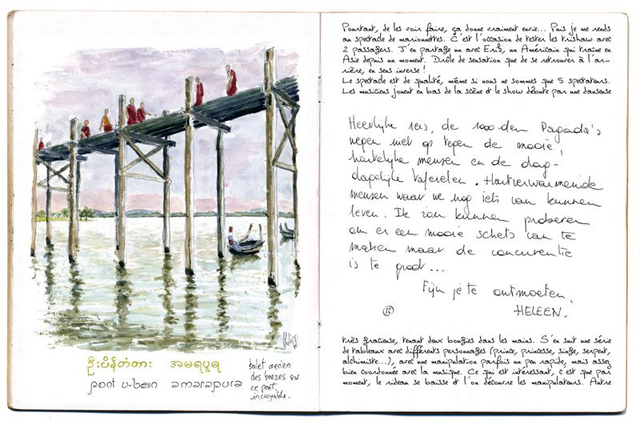 ဦးပိန်တံတား အမရပူရ
pont u-bein amarapura
balet aérien
des bonzes sur
ce pont
incroyable.
Pourtant, de les voir faire, ça donne vraiment envie... Puis je me rends
au spectacle de marionnettes. C'est l'occasion de tester les trishaw avec
2 passagers. J'en partage un avec Eric, un Américain qui traîne en
Asie depuis un moment. Drôle de sensation que de se retrouver à l'ar-
rière, en sens inverse!
Le spectacle est de qualité, même si nous ne sommes que 5 spectateurs.
Les musiciens jouent en bas de la scène et le show débute par une danseuse
Heerlijke reis, de 1000-den Pagoda's
wegen niet op tegen de mooie,
hartelijke mensen en de dag-
dagelijkse taferelen. Hartverwarmende
mensen waar we nog iets van kunnen
leren. Ik zou kunnen proberen
om er een mooie schets van te
maken maar de concurrentie
is te groot...
Fijn je te ontmoeten,
HELEEN.
très gracieuse, tenant deux bougies dans les mains. S'en suit une série
de tableaux avec différents personnages (prince, princesse, singe, serpent,
alchimiste...), avec une manipulation parfois un peu rapide, mais assez
bien coordonnée avec la musique. Ce qui est intéressant, c'est que par
moment, le rideau se baisse et l'on découvre les manipulateurs. Autre